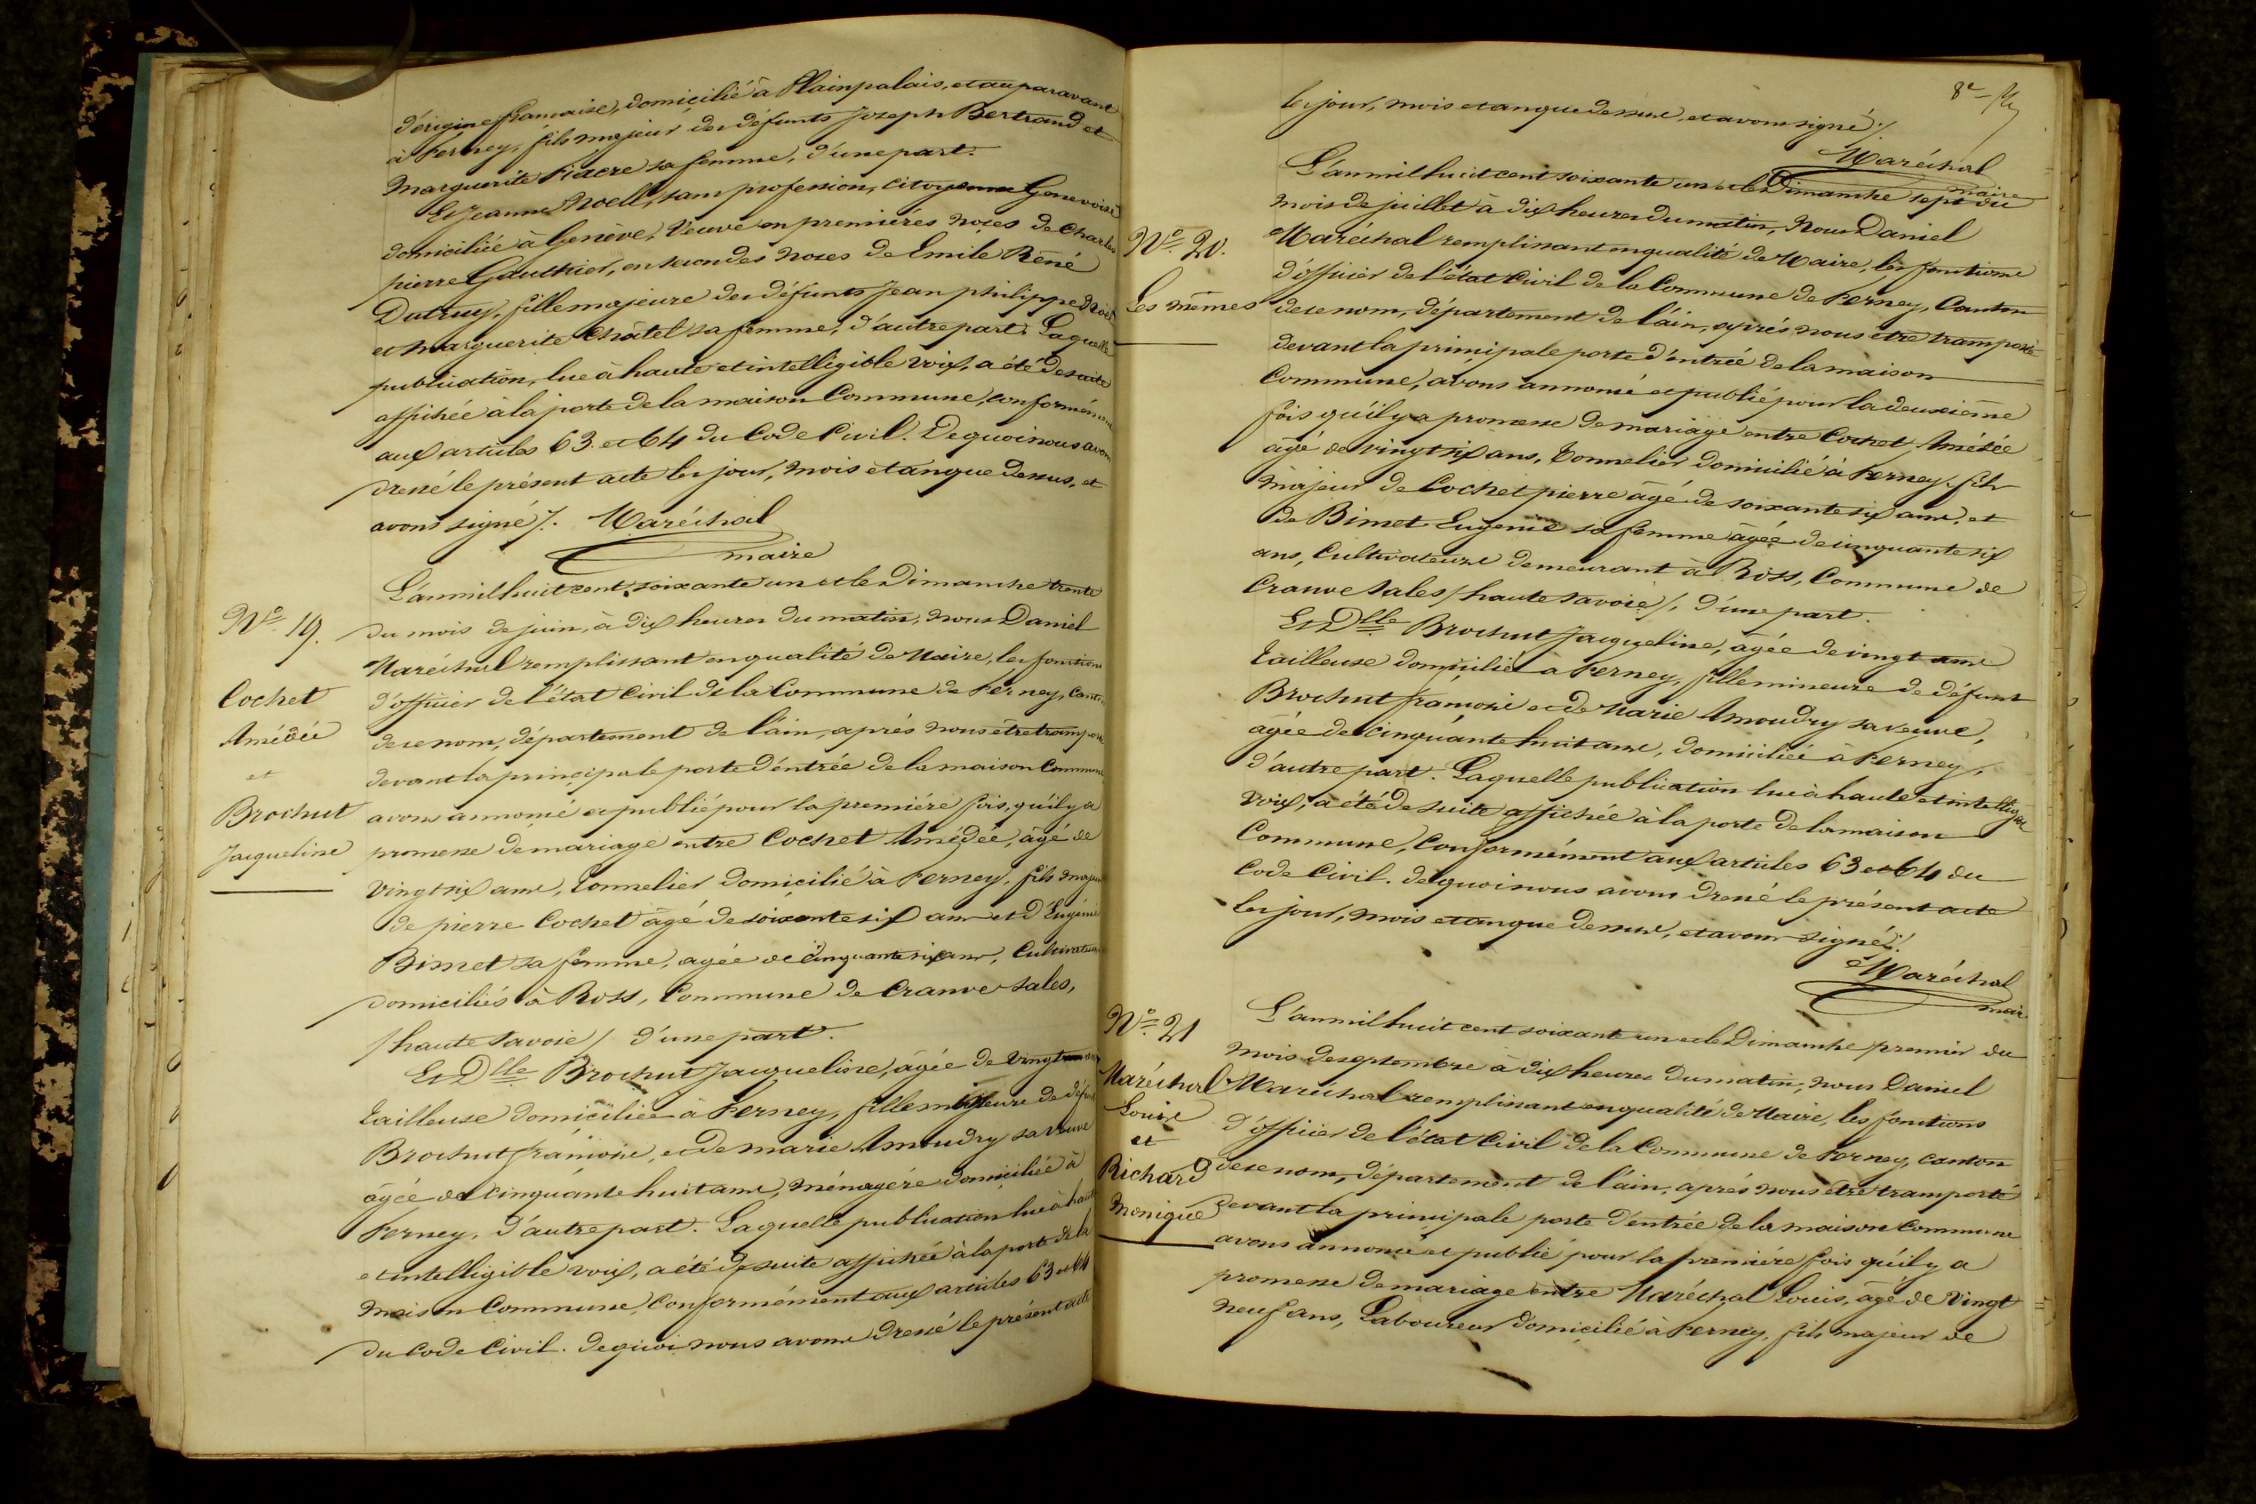 d'origine française, domicilié à Plainpalais, et auparavant
à Ferney, fils majeur des défunts Joseph Bertrand et
Marguerite Fiacre sa femme, d'une part.
Et Jeanne Noell, sans profession, citoyenne Genevoise
domiciliée à Genève, Veuve en premières noces de Charles
pierre Gauthier, en secondes noces de Emile Réné
Dutruy, fille majeure des défunts Jean philippe Noël
et Marguerite Châtel sa femme, d'autre part. Laquelle
publication, lue à haute et intelligible voix, a été de suite
affichée à la porte de la maison Commune, conformément
aux articles 63 et 64 du Code Civil. De quoi nous avons
dressé le présent acte les jour, mois et an que dessus, et
avons signé ./. Maréchal
maire
N° 19.
Cochet
Amédée
et
Brochut
Jacqueline
L'an mil huit cent soixante un et le Dimanche trente
du mois de juin, à dix heures du matin, nous Daniel
Maréchal remplissant en qualité de Maire, les fonctions
d'officier de l'état Civil de la Commune de Ferney, Canton
de ce nom, département de l'ain, après nous être transporté
devant la principale porte d'entrée de la maison Commune
avons annoncé et publié pour la première fois, qu'il y a
promesse de mariage entre Cochet Amédée, âgé de
vingt six ans, Tonnelier domicilié à Ferney, fils majeur
de pierre Cochet âgé de soixante six ans et d'Eugénie
Bimet sa femme, agée de cinquante six ans, Cultivateurs
domiciliés à Ross, Commune de Cranve-Sales,
/haute Savoie/ d'une part.
Et Dlle Brochut Jacqueline, âgée de vingt ans
Tailleuse domiciliée à Ferney, fille mineure de défunt
Brochut françois, et de marie Amoudry sa veuve
âgée de cinquante huit ans, ménagère domiciliée à
Ferney, d'autre part. Laquelle publication lue à haute
et intelligible voix, a été de suite affichée à la porte de la
maison Commune, Conformément aux articles 63 et 64
du Code Civil. de quoi nous avons dressé le présent acte
les jour, mois et an que dessus, et avons signé ./.
Maréchal
maire
N° 20.
Les mêmes
L'an mil huit cent soixante un et le Dimanche sept du
mois de juillet à dix heures du matin, Nous Daniel
Maréchal remplissant en qualité de Maire, les fonctions
d'officier de l'état Civil de la Commune de Ferney, Canton
de ce nom, département de l'ain, après nous être transporté
devant la principale porte d'entrée de la maison
Commune, avons annoncé et publié pour la deuxième
fois qu'il y a promesse de mariage entre Cochet Amédée
âgé de vingt six ans, Tonnelier domicilié à Ferney, fils
majeur de Cochet pierre âgé de soixante six ans, et
de Bimet Eugénie sa femme âgée de cinquante six
ans, Cultivateurs demeurant à Ross, Commune de
Cranve Sales /haute Savoie/, d'une part.
Et Dlle Brochut Jacqueline, âgée de vingt ans
Tailleuse domiciliée à Ferney, fille mineure de défunt
Brochut françois et de Marie Amoudry sa veuve,
âgée de cinquante huit ans, domiciliée à Ferney,
d'autre part. Laquelle publication lue à haute et intelligible
voix, a été de suite affichée à la porte de la maison
Commune, Conformément aux articles 63 et 64 du
Code Civil. de quoi nous avons dressé le présent acte
les jour, mois et an que dessus, et avons signé ./.
Maréchal
maire
N° 21
Maréchal
Louis
et
Richard
Monique
L'an mil huit cent soixante un et le Dimanche premier du
mois de septembre à dix heures du matin, nous Daniel
Maréchal remplissant en qualité de Maire, les fonctions
d'officier de l'état Civil de la Commune de Ferney, canton
de ce nom, département de l'ain, après nous être transporté
devant la principale porte d'entrée de la maison Commune
avons annoncé et publié pour la première fois qu'il y a
promesse de mariage entre Maréchal Louis, âgé de vingt
neuf ans, Laboureur domicilié à Ferney, fils majeur de